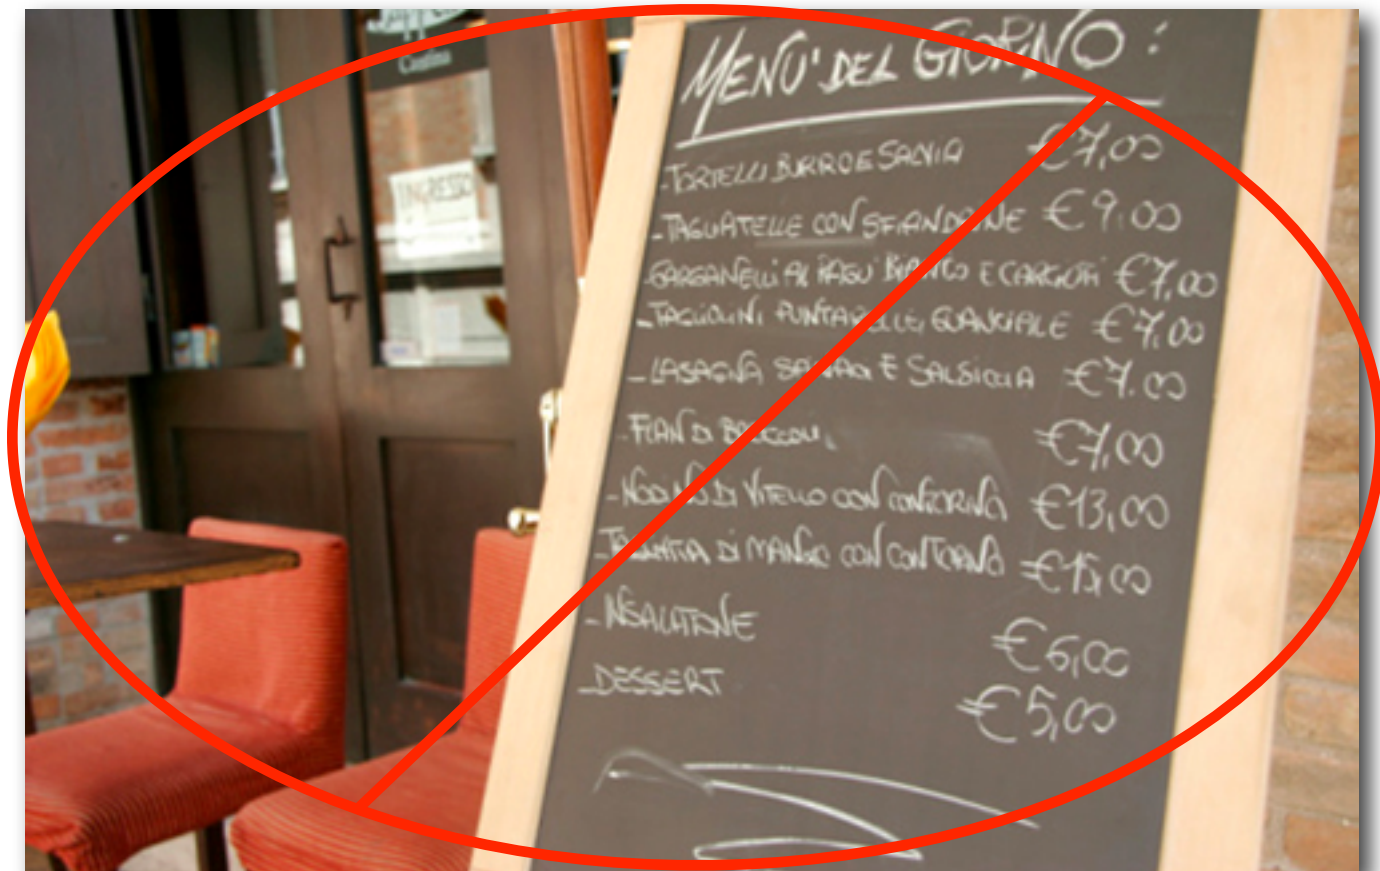 Cantina
INGRESSO
MENU' DEL GIORNO :
- TORTELLI BURRO E SALVIA €7,00
- TAGLIATELLE CON €9,00
- GARGANELLI AL RAGU' BIANCO E CARCIOFI €7,00
- TAGLIOLINI PUNTARELLE GUANCIALE €7,00
- LASAGNA E SALSICCIA €7,00
- FLAN DI BROCCOLI €7,00
- NODINO DI VITELLO CON CONTORNO €13,00
- TAGLIATA DI MANZO CON CONTORNO €15,00
- INSALATONE €6,00
- DESSERT €5,00